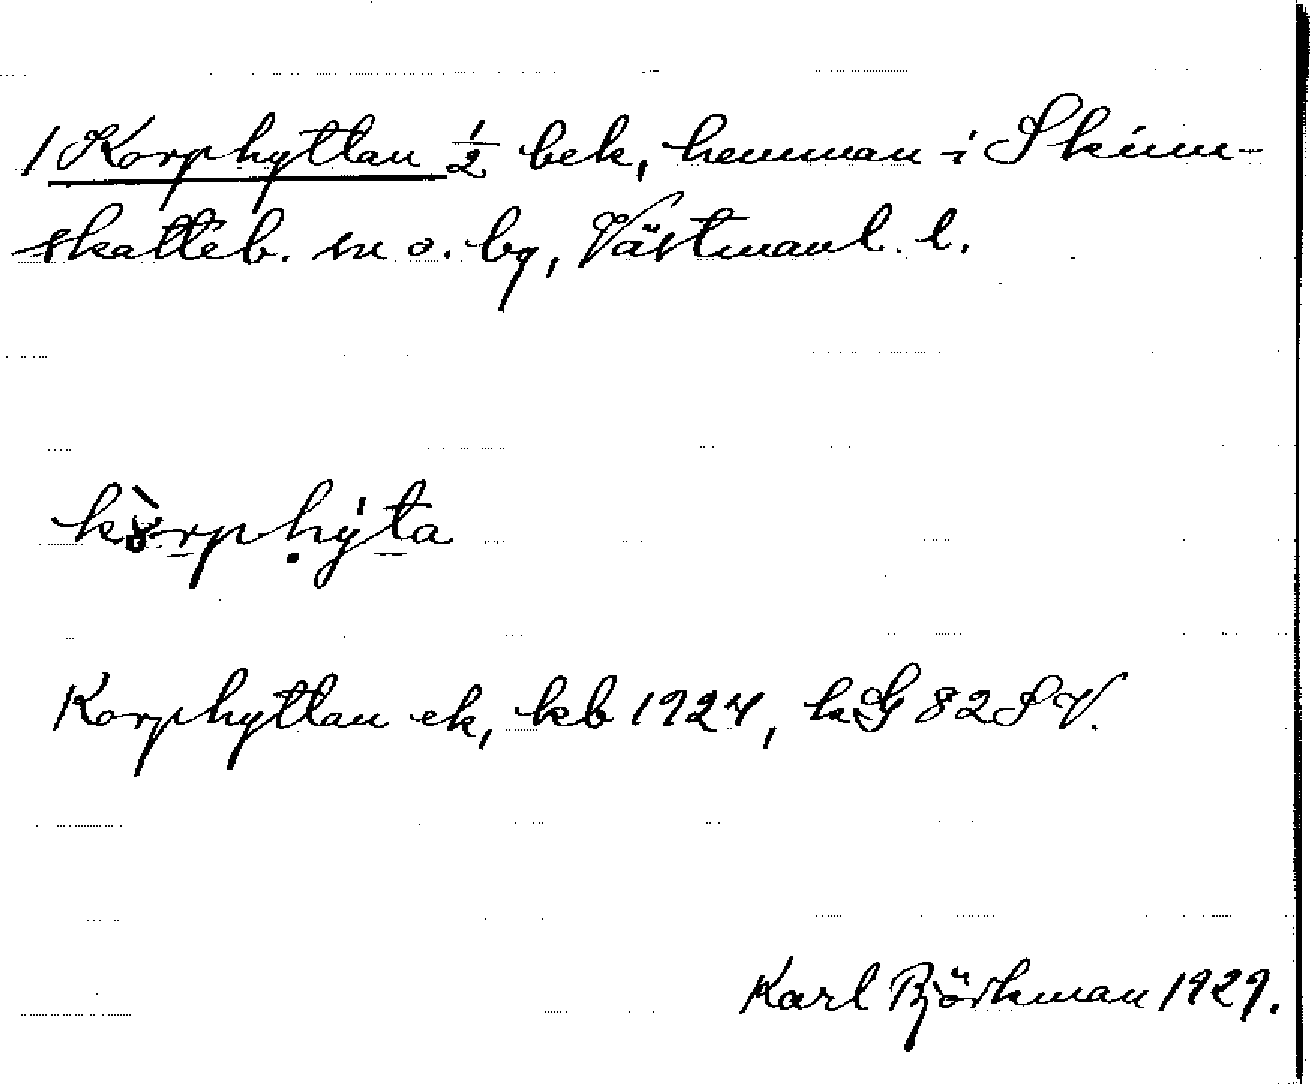 1 Korphyttan 1/2 bek, hemman i Skinn-
skatteb. sn o. bg, Västmanl. l.
kòrphýta
Korphyttan ek, kb 1924, hG 82 SV.
Karl Björkman 1929.